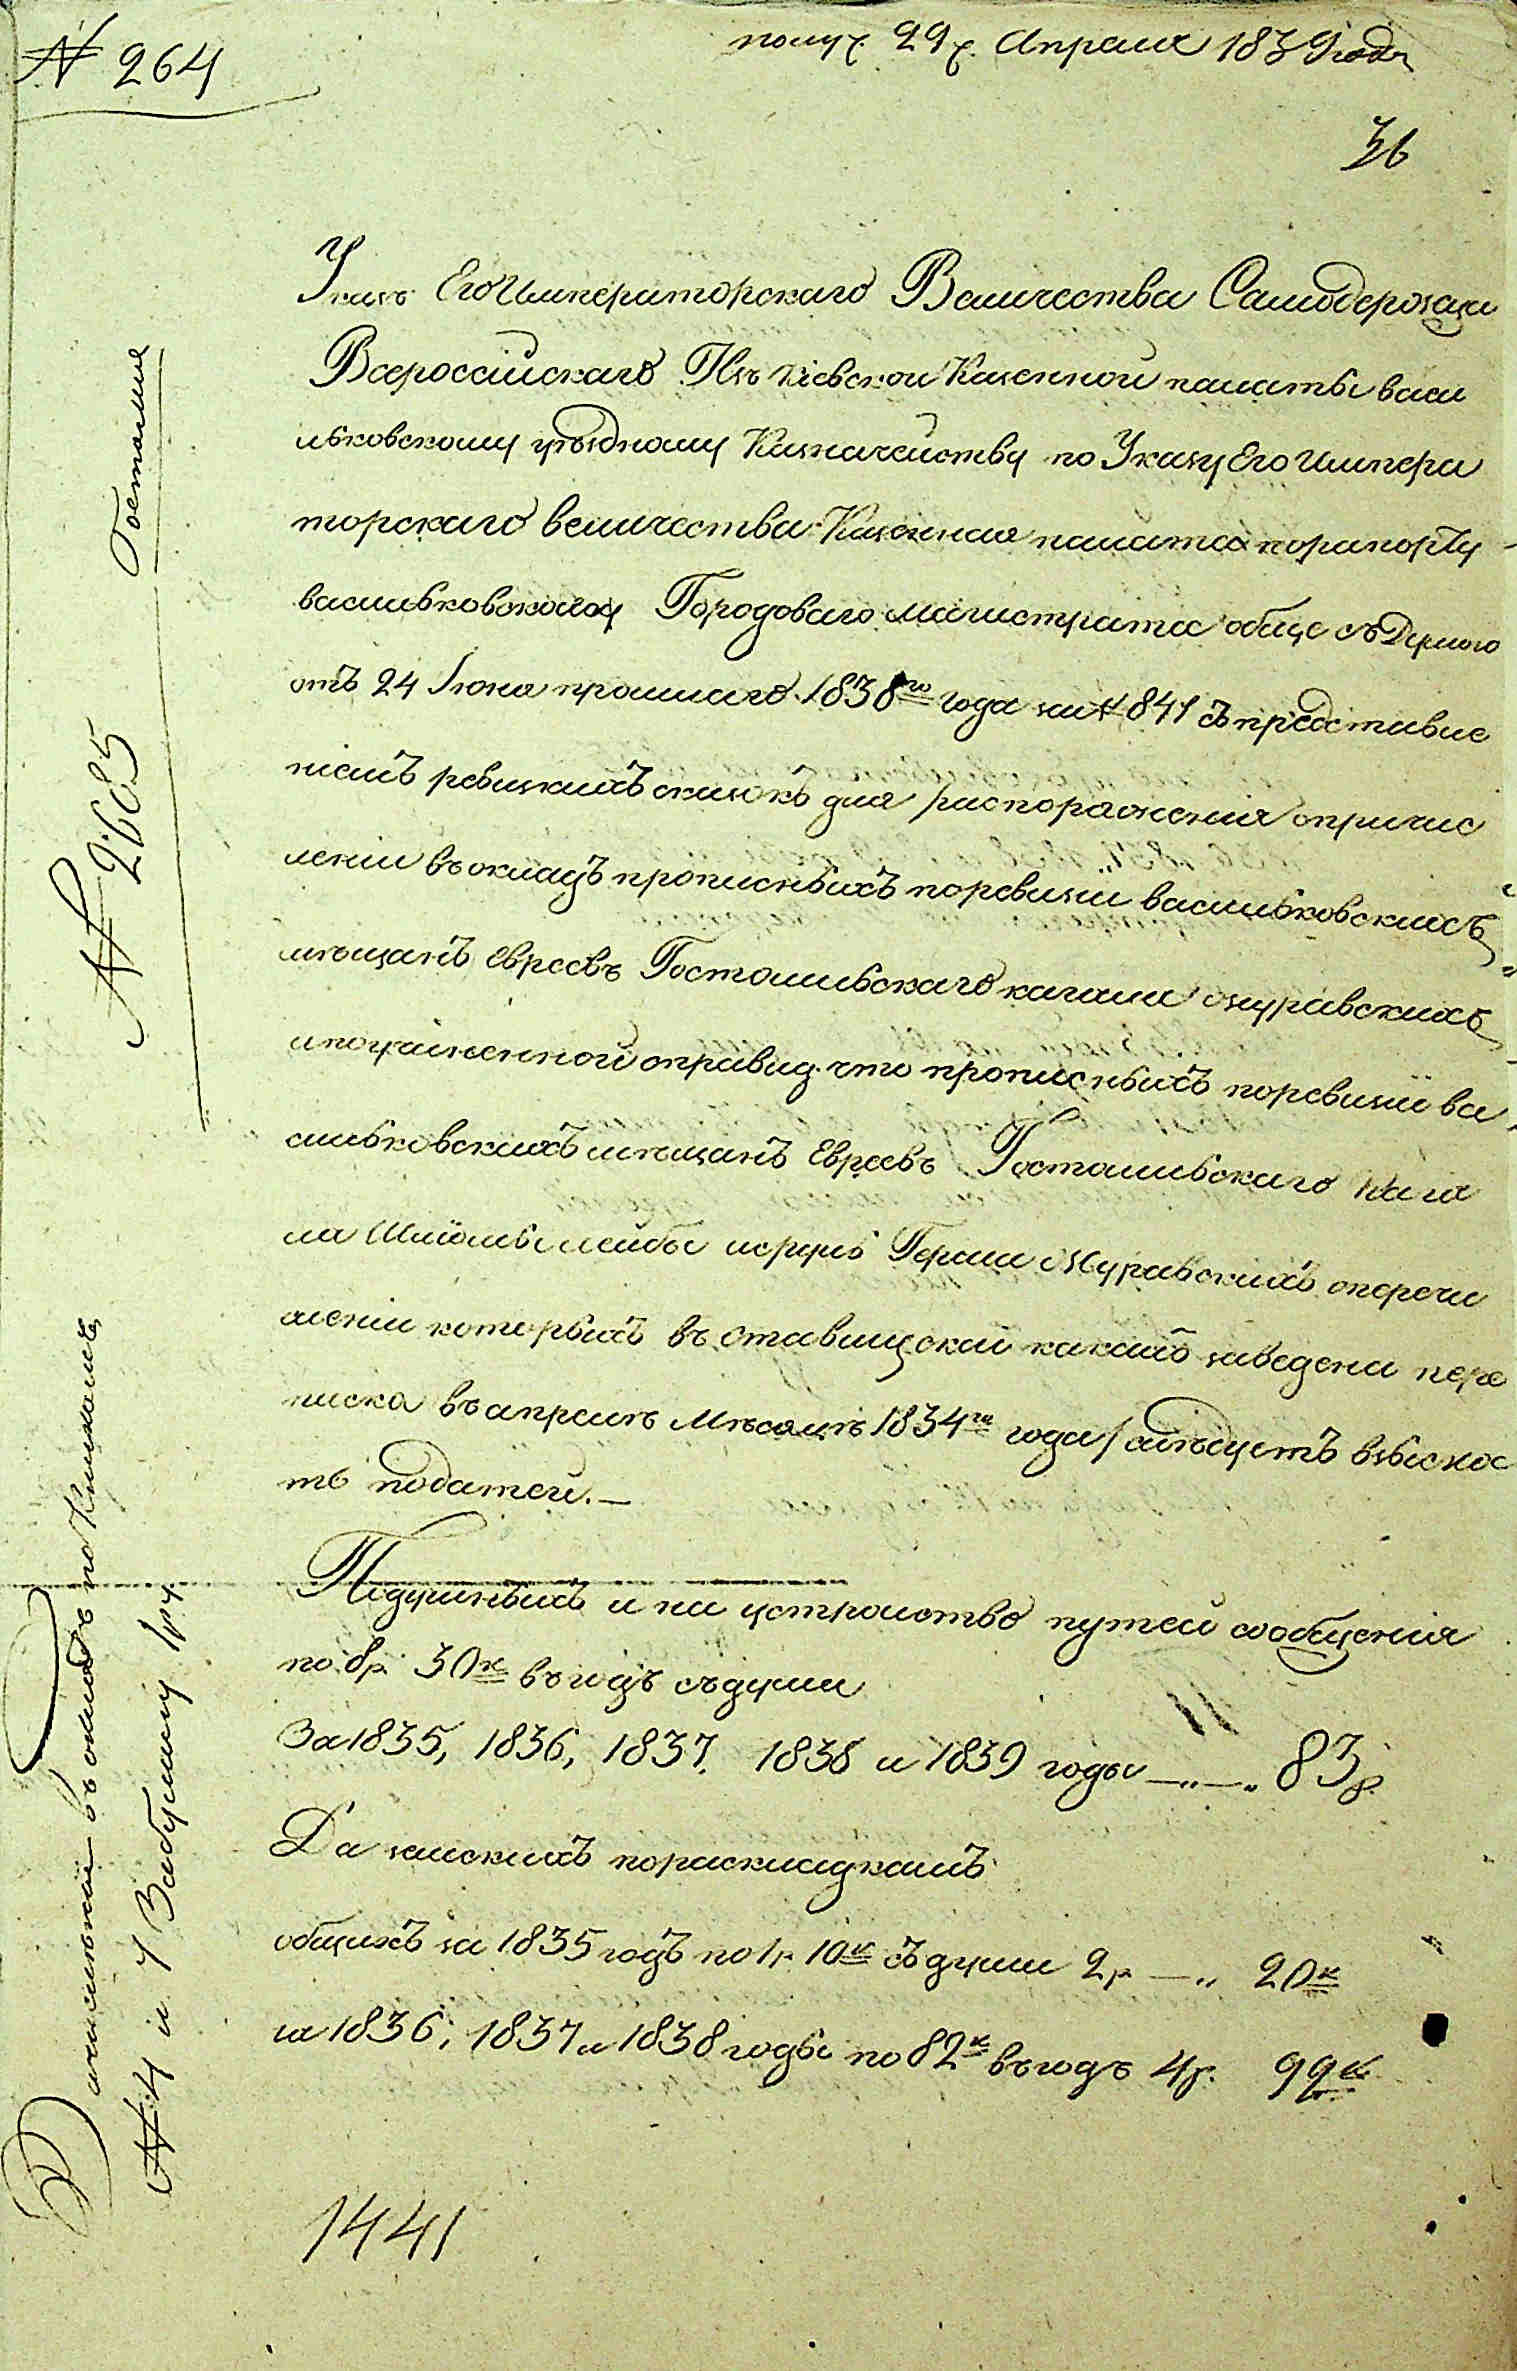 № 264
получ. 29 ч. Апреля 1839 года
36
Указъ Его Императорскаго Величества Самодержца
Всероссійскаго Изъ Кіевской Казенной палаты васи
льковскому уѣздному Казначейству по Указу Его Импера
торскаго величества Казенная палата порапорту
васильковскаго Городоваго магистрата обще съ Думою
отъ 24 Іюня прошлаго 1838го года за № 841 съ представле
ніемъ ревизкихъ сказокъ для распоряженія опричис
леніи въ окладъ прописныхъ поревизіи васильковскихъ
мѣщанъ Евреевъ Гостомльскаго кагала Журавскихъ
и поучиненной справке что прописныхъ поревизіи ва
сильковскихъ мѣщанъ Евреевъ Гостомльскаго Кага
ла Шмюлы лейбы Герша Журавскихъ оперечи
сленіи которыхъ въ ставищскій кагалъ заведена пере
писка въ апрелѣ Мѣсяцѣ 1834го года слѣдуетъ взыска
ть податей. —
Подушныхъ и на устройство путей сообщенія
по 8р 30к въ годъ съ души
За 1835, 1836, 1837, 1838 и 1839 годы —"—" 83р
Да земскихъ пораскладкамъ
общихъ за 1835 годъ по 1р 10к съ души 2р —" 20к
за 1836, 1837 и 1838 годы по 82к въ годъ 4р. 92к
1441
Гостомля
№ 2685
въ окладъ по
№ 4 и